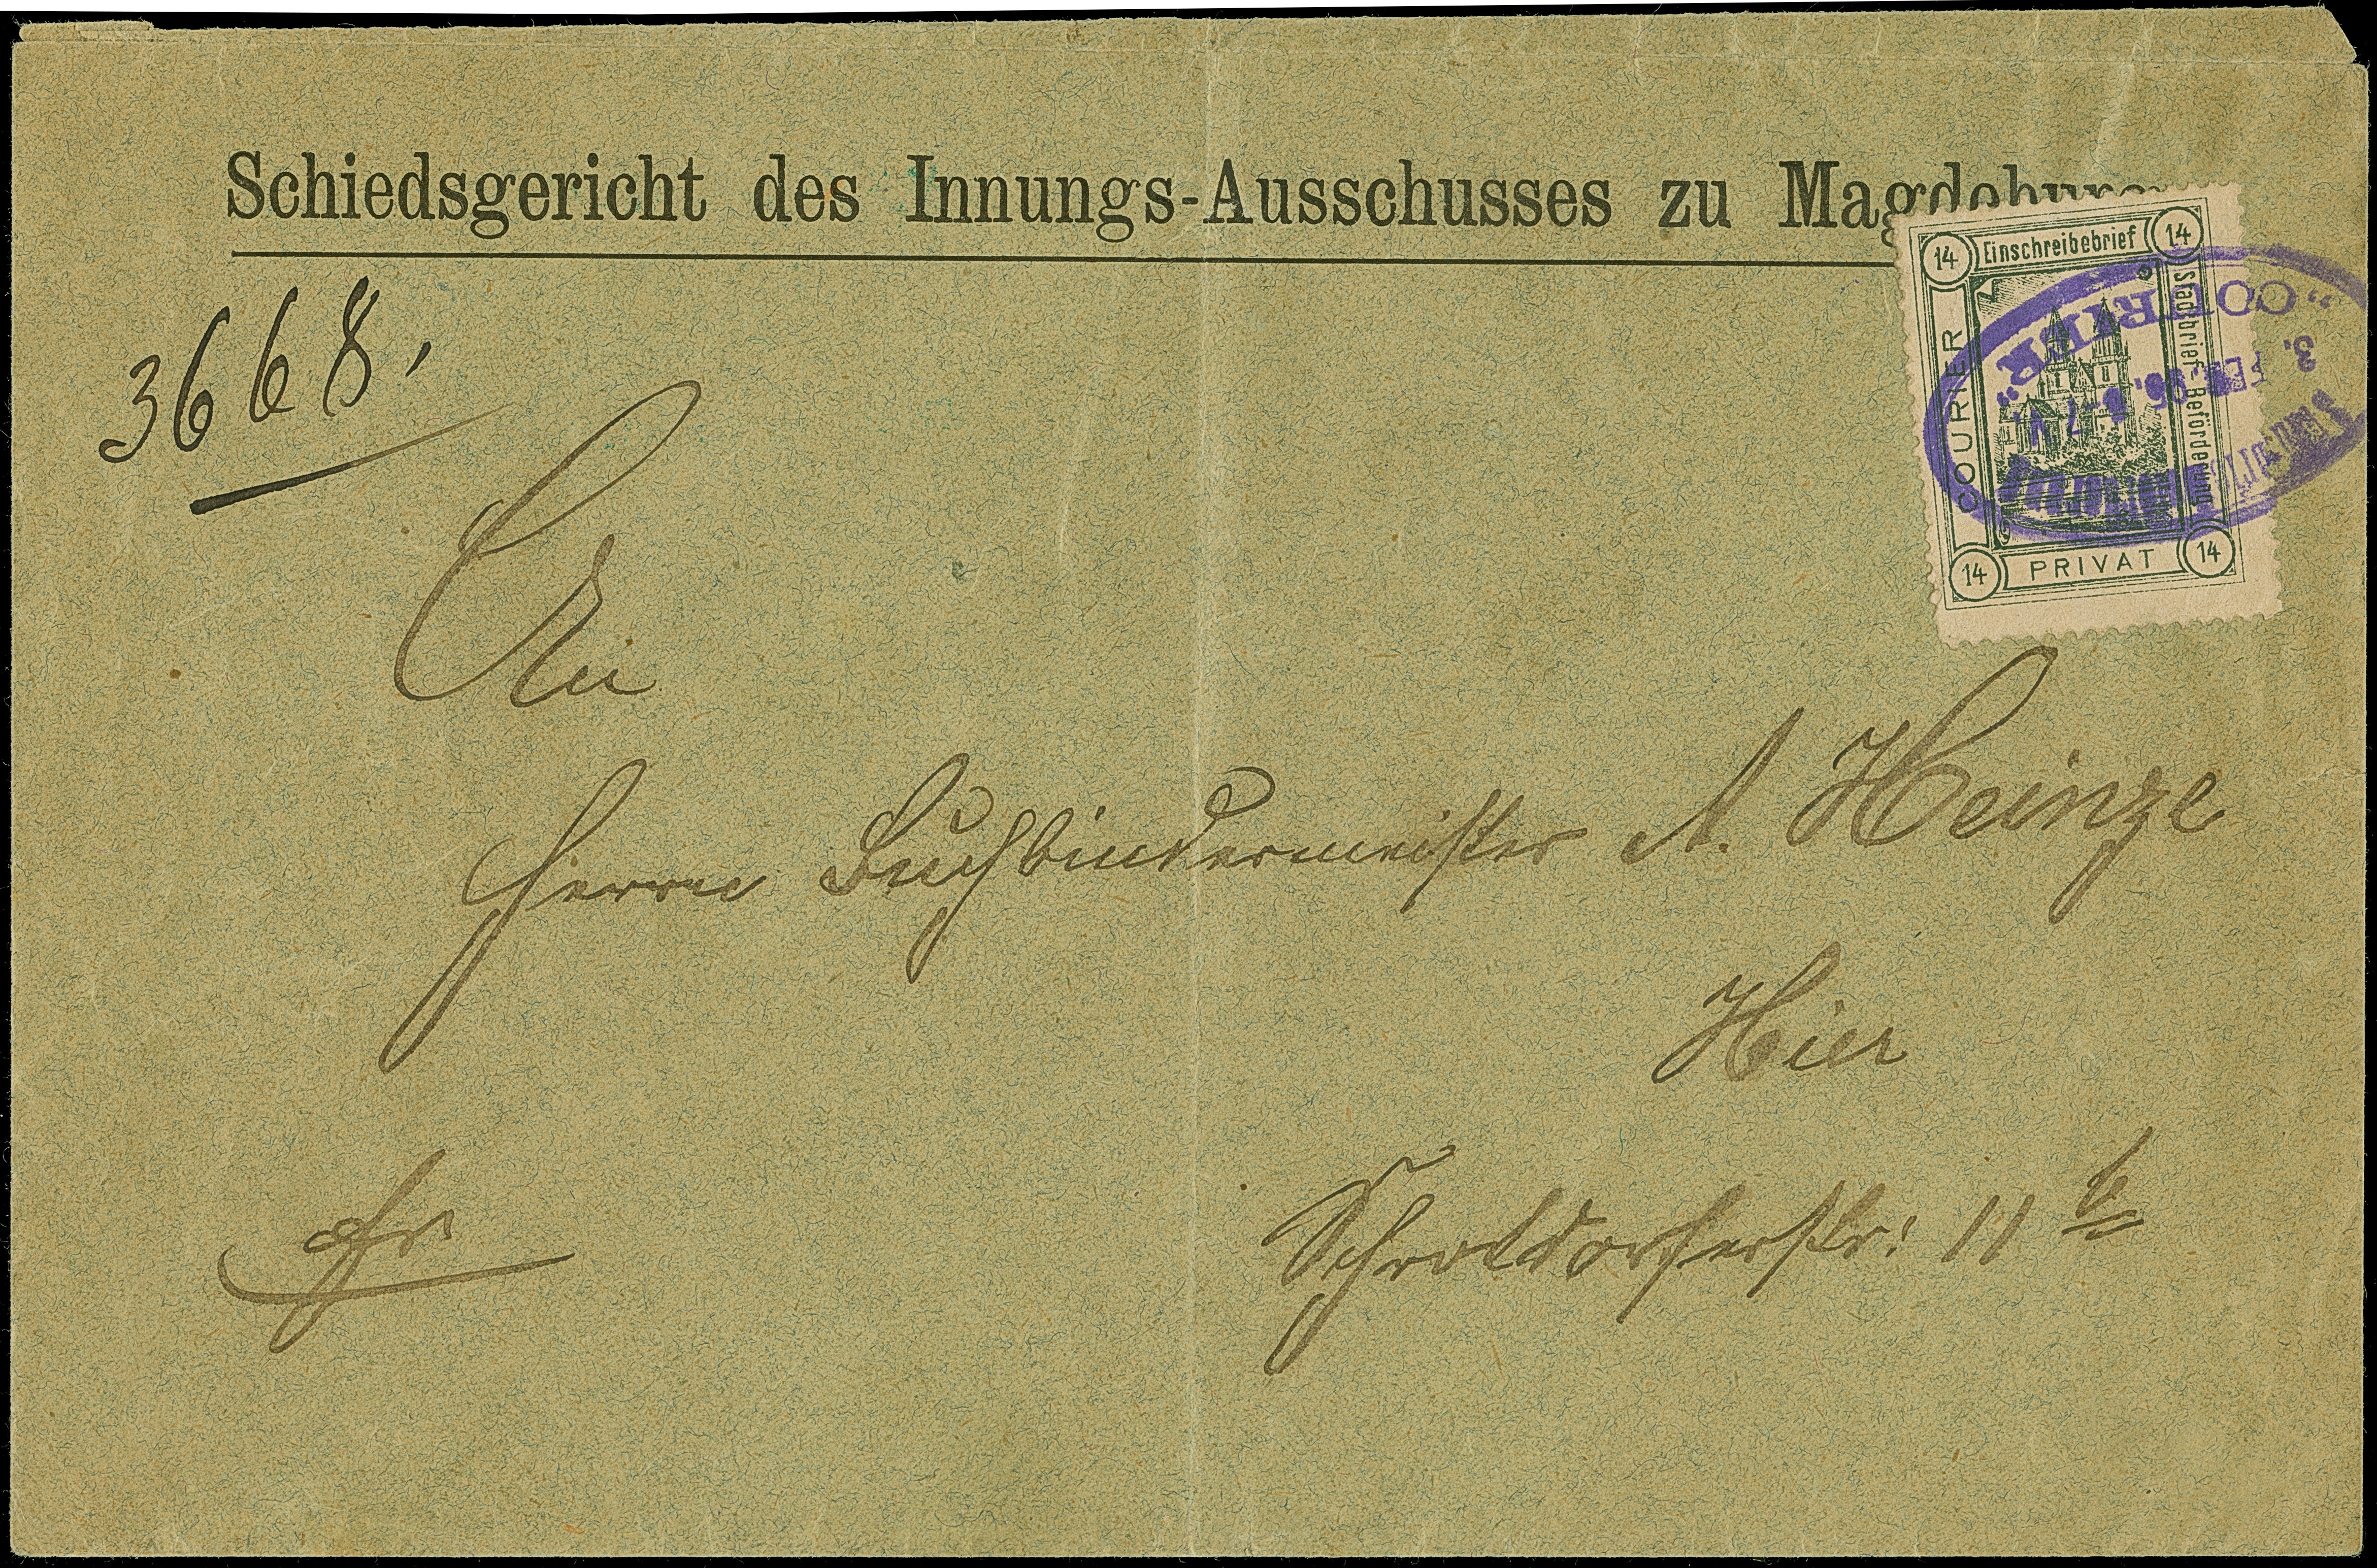 Schiedsgericht des Innungs-Ausschusses zu Magdeburg
14 Einschreibebrief 14
Stadtbrief-Beförderung
COURIER
14 PRIVAT 14
"COURIER"
3. FEB. 96. 6-7 N.
3668.
An
Herrn Buchbindermeister A. Heinze
Hier
Schrotdorferstr: 11 b
fr